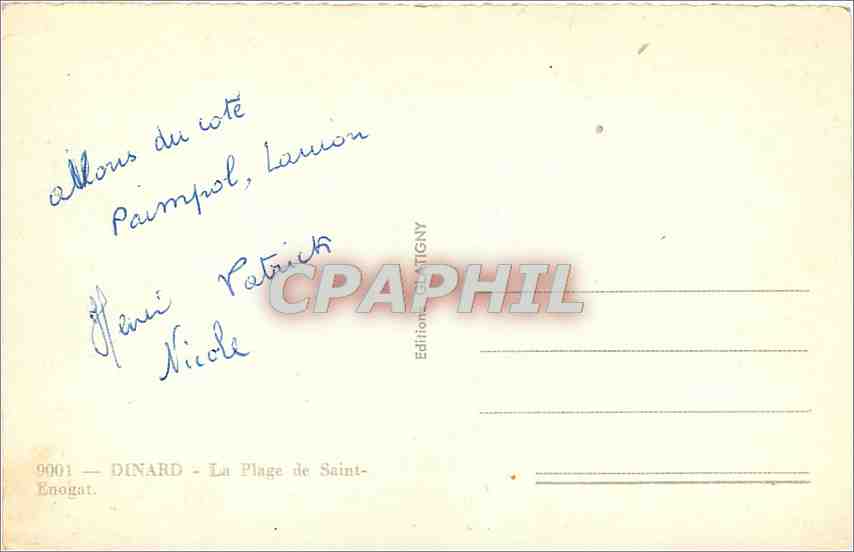 allons du coté
Paimpol, Lannion
Henri Patrick
Nicole
CPAPHIL
Editions GLATIGNY
9001 — DINARD - La Plage de Saint-
Enogat.